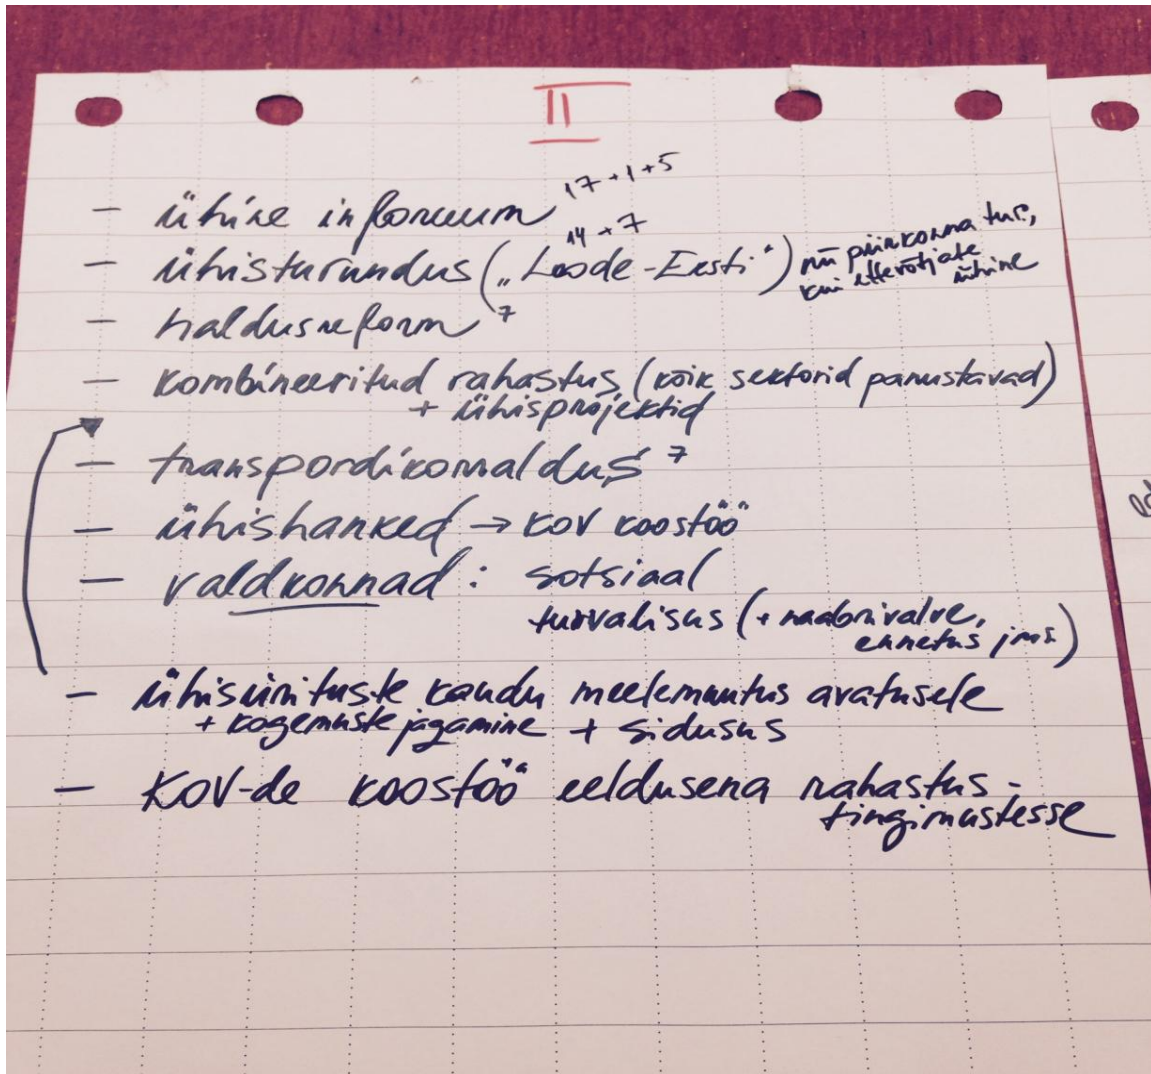 II
- ühine inforuum 17+1+5
- ühisturundus („Loode-Eesti“) 14+7 nii piirkonna tur.,
kui ettevõtjate
ühine
- haldusreform 7
- kombineeritud rahastus (kõik sektorid panustavad)
+ ühisprojektid
- transpordikorraldus 7
- ühishanked → KOV koostöö
- valdkonnad: sotsiaal
turvalisus (+ naabrivalve,
ennetus jms)
- ühisürituste kaudu meelemuutus avatusele
+ kogemuste jagamine + sidusus
- KOV-de koostöö eeldusena rahastus-
tingimustesse